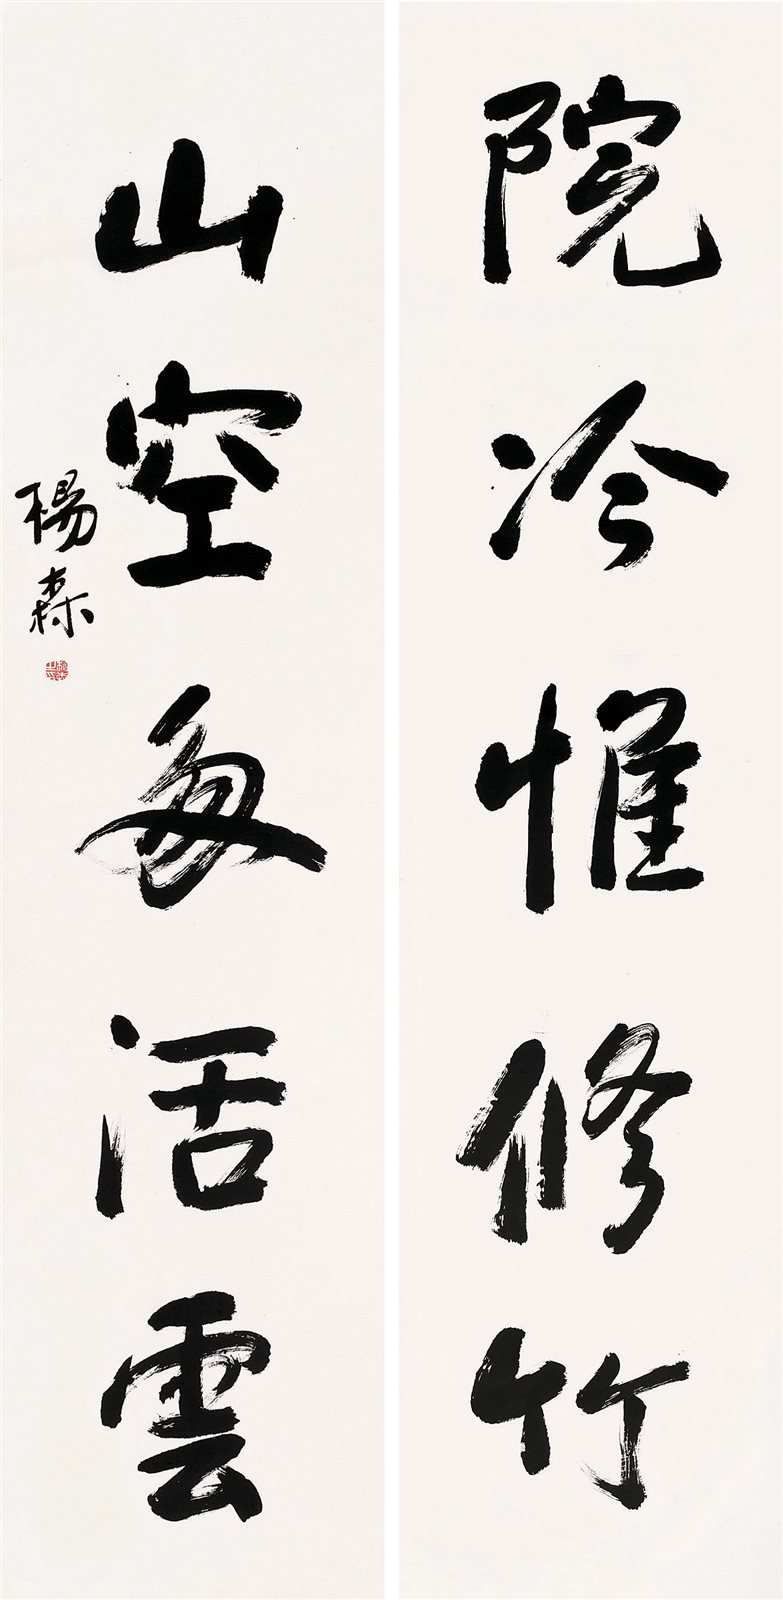 院冷惟修竹
山空多活雲
楊森